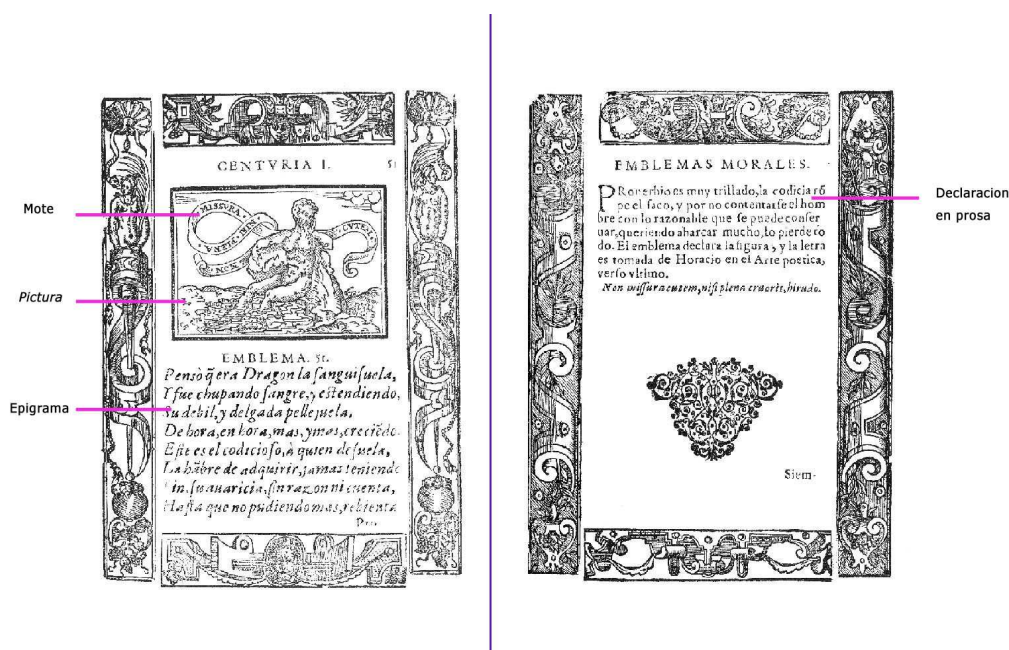 CENTVRIA I. 51
Mote
MISSVRA
CVTEM
NISI PLENA
NON
Pictura
EMBLEMA. 51.
Pensò q̃ era Dragon la sanguisuela,
Y fue chupando sangre, y estendiendo,
Su debil, y delgada pellejuela,
Epigrama
De hora, en hora, mas, y mas, creciẽdo.
Este es el codicioso, à quien desuela,
La hãbre de adquirir, jamas teniendo
Fin, su auaricia, sin razon ni cuenta,
Hasta que no pudiendo mas, rebienta
EMBLEMAS MORALES.
PRouerbio es muy trillado, la codicia rõ
pe el saco, y por no contentarse el hom
bre con lo razonable que se puede conser
uar, queriendo abarcar mucho, lo pierde to
do. El emblema declara la figura, y la letra
es tomada de Horacio en el Arte poetica,
verso vltimo.
Non missura cutem, nisi plena cruoris, hirudo.
Siem-
Declaracion
en prosa